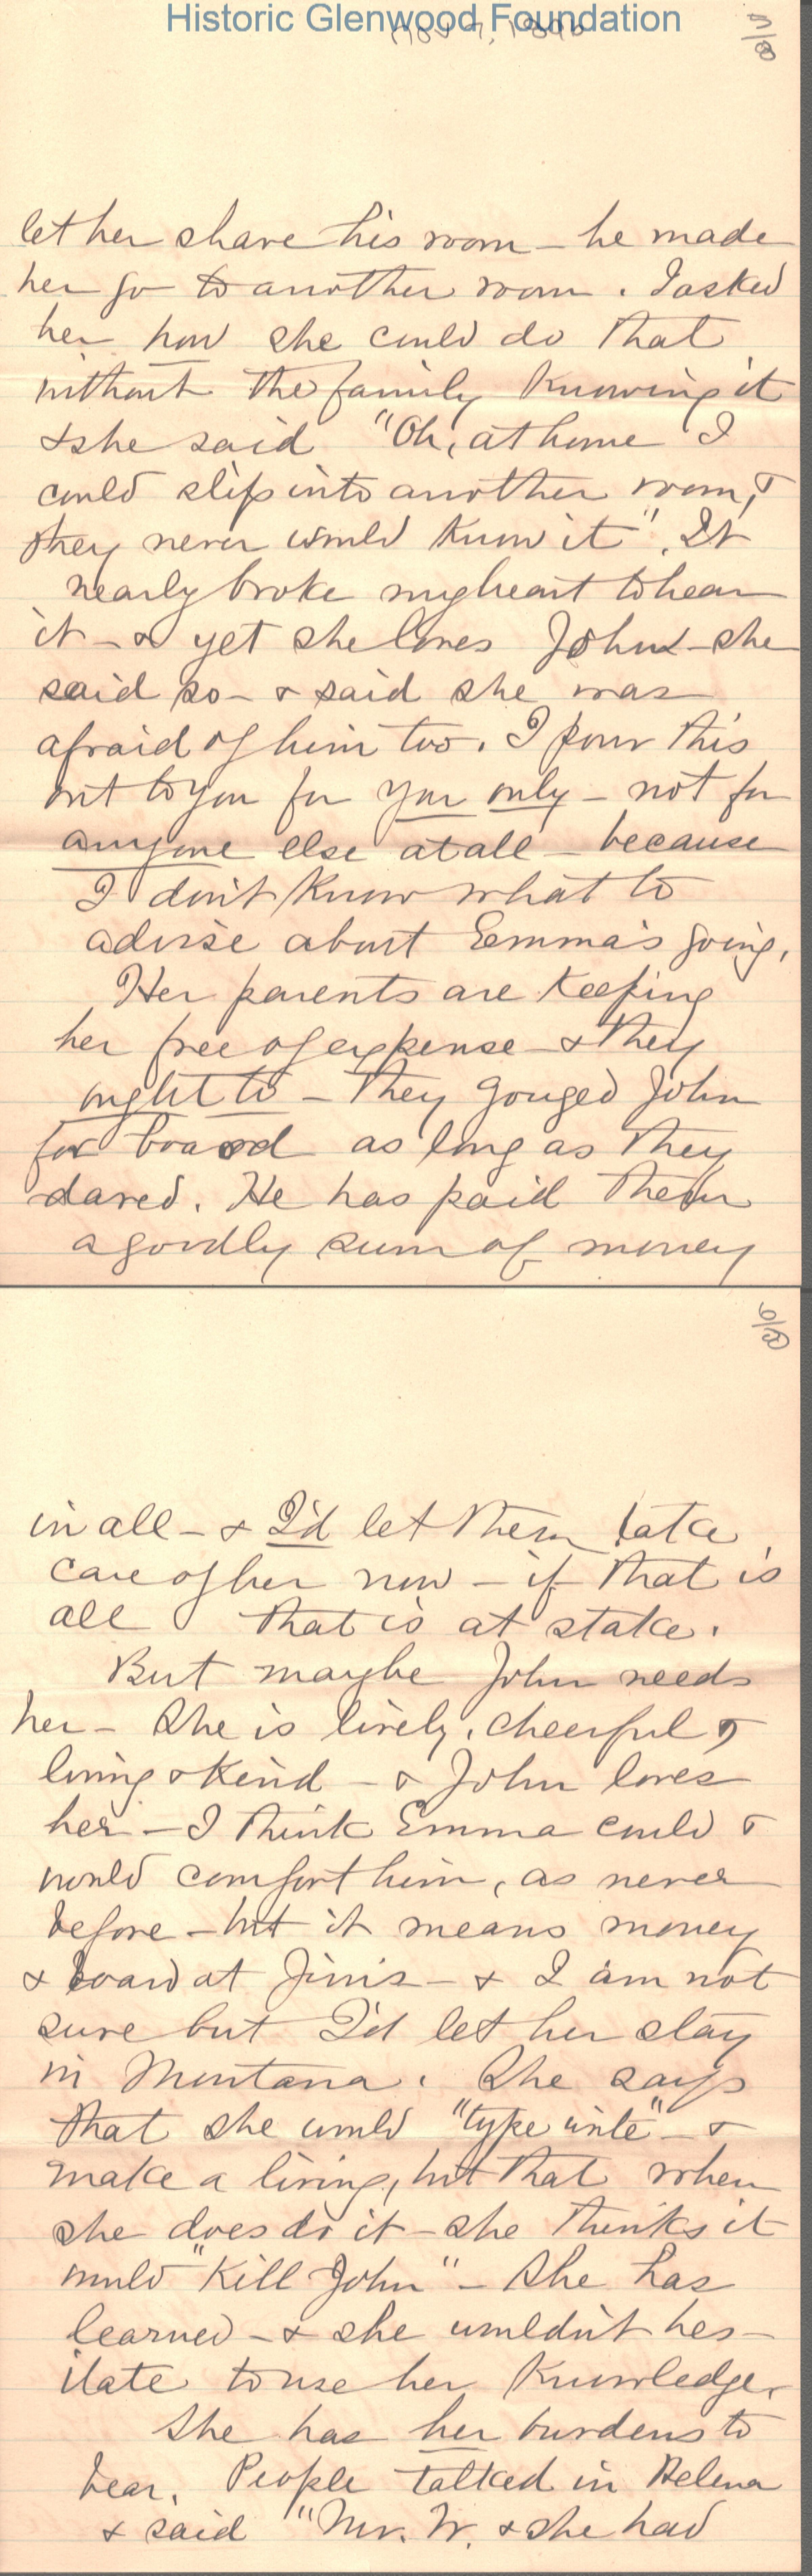 Historic Glenwood Foundation
Nov 7, 1896
let her share his room – he made
her go to another room. I asked
her how she could do that
without the family knowing it
& she said "Oh, at home I
could slip into another room, &
they never would know it". It
nearly broke my heart to hear
it – & yet she loves John – she
said so – & said she was
afraid of him too. I pour this
out to you for you only – not for
anyone else at all – because
I don't know what to
advise about Emma's going.
Her parents are keeping
her free of expense – & they
ought to – they gouged John
for board as long as they
dared. He has paid them
a goodly sum of money
in all – & I'd let them take
care of her now – if that is
all that is at stake.
But maybe John needs
her – She is lively, cheerful &
loving & kind – & John loves
her – I think Emma could &
would comfort him, as never
before – but it means money
& board at Jim's – & I am not
sure but I'd let her stay
in Montana. She says
that she would "type write" – &
make a living, but that when
she does do it – she thinks it
would "kill John" – She has
learned – & she wouldn't hes-
itate to use her knowledge.
She has her burdens to
bear. People talked in Helena
& said "Mr. W. & she had